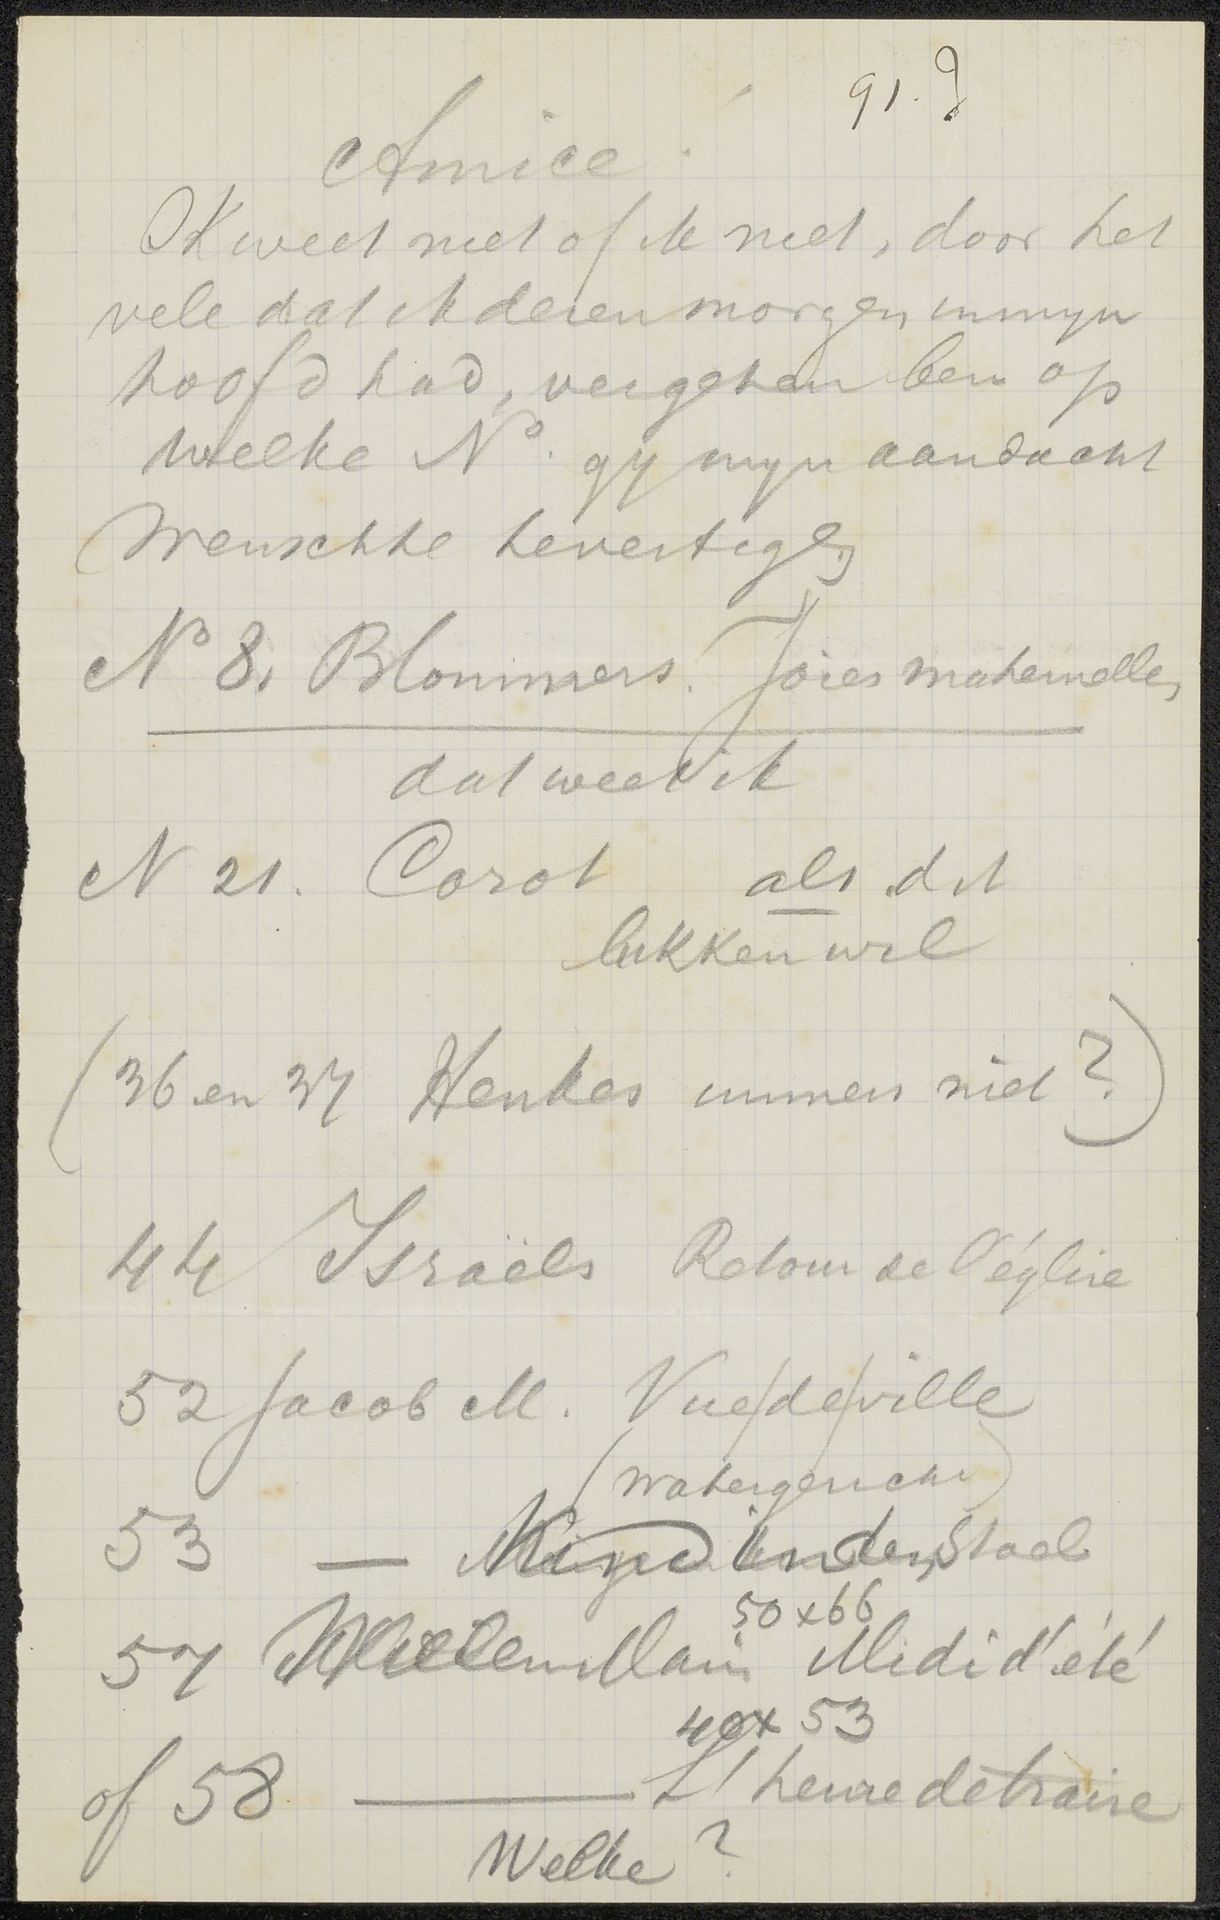 91.?
Amice!
Ik weet niet of ik niet, door het
vele dat ik dezen morgen in myn
hoofd had, vergeten ben op
welke No. gy myn aandacht
Wenschte te vestigen
No 8. Blommers. Joies maternelles
dat weet ik
N 21. Corot als dit
lukken wil
(36 en 37 Henkes immers niet?)
44 Israëls Retour de l'église
52 Jacob M. Vue de ville
(Watergezicht)
53 — in den Stal
50 x 66
57 Willem Maris Midi d'été
40 x 53
of 58 — L'heure de traire
Welke?